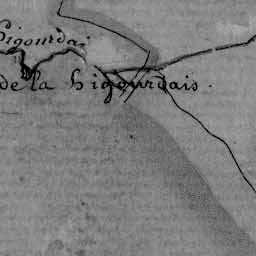 Higourdai
de la higourdais.